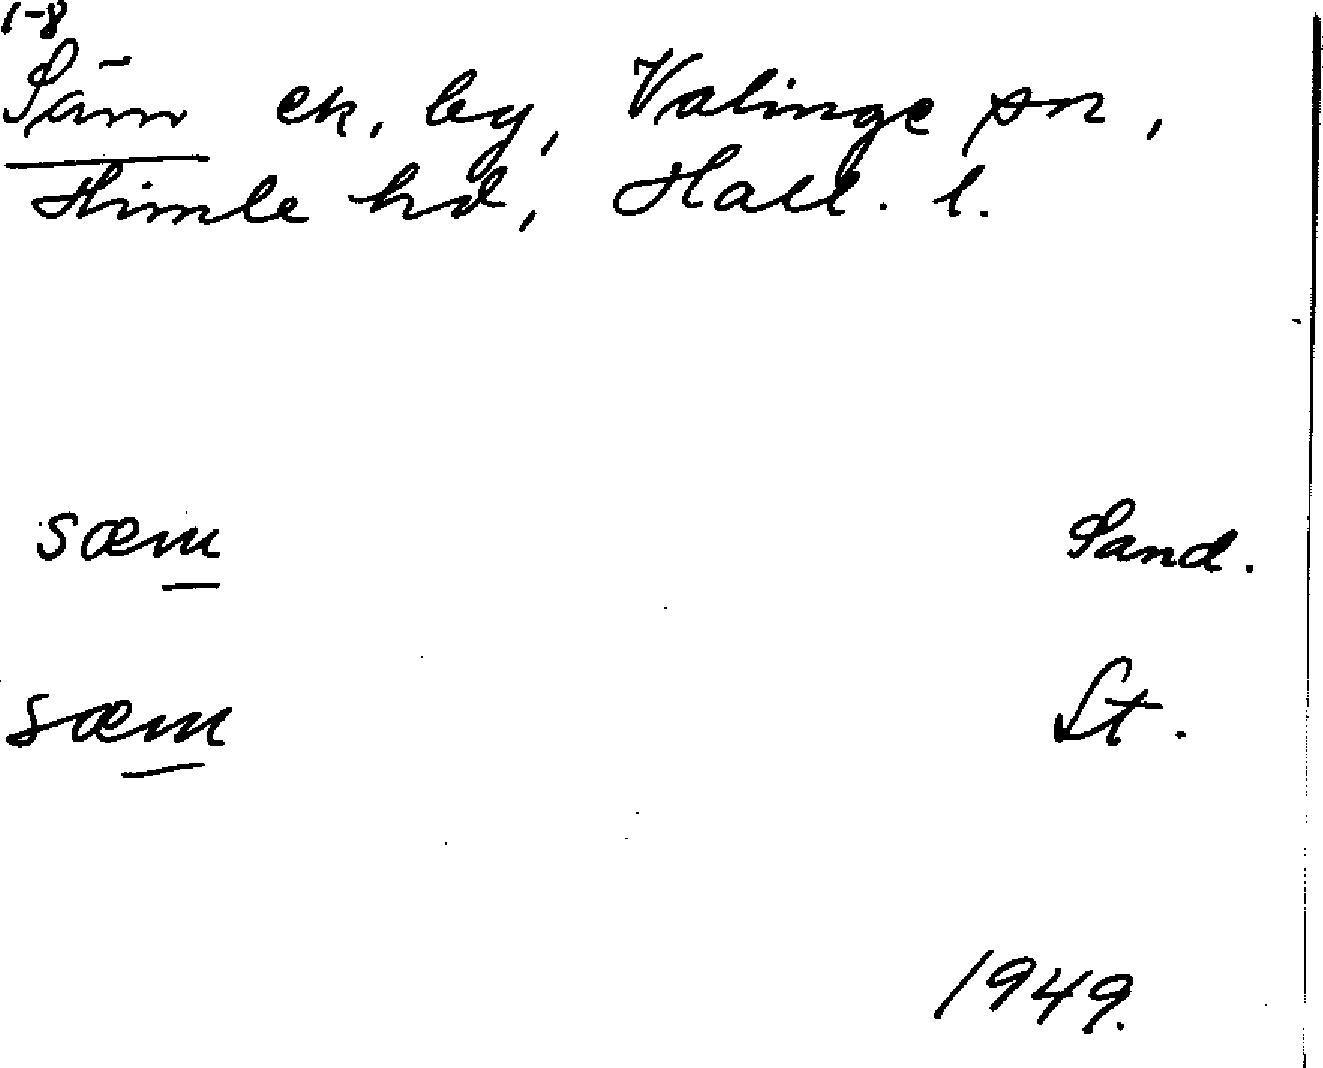 1-8
Säm ek. by, Valinge sn,
Himle hd, Hall. l.
sæm Sand.
sæm St.
1949.